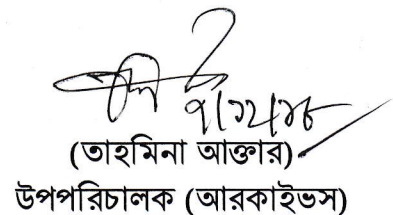 ৭/১২/১৮
(তাহমিনা আক্তার)
উপপরিচালক (আরকাইভস)